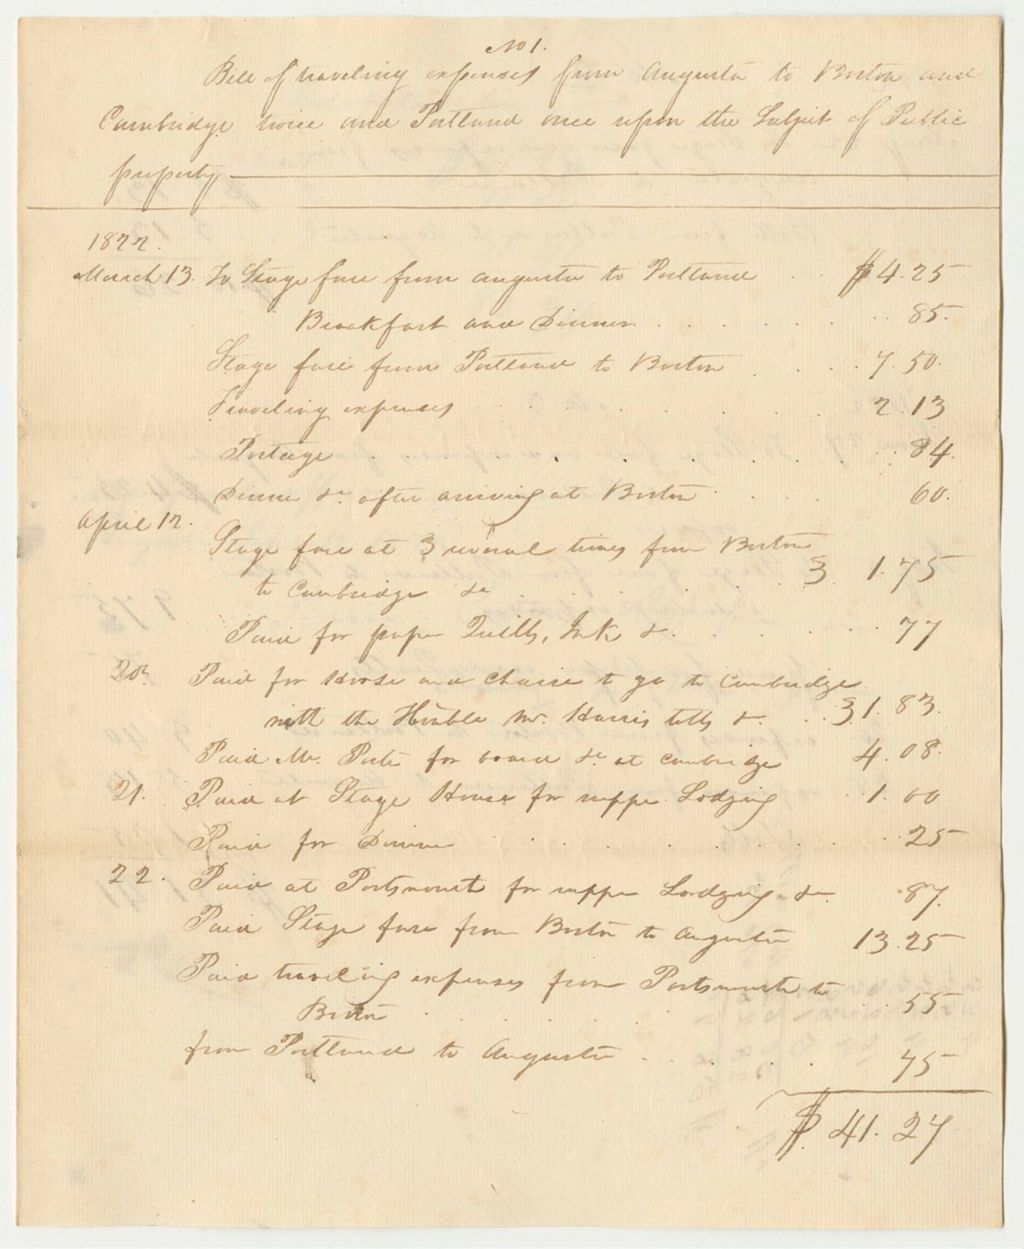 No 1.
Bill of traveling expenses from Augusta to Boston and
Cambridge twice and Portland once upon the Subject of Public
property
1822.
March 13. To Stage fare from Augusta to Portland . . $4.25
Breakfast and Dinner . . . . 85.
Stage fare from Portland to Boston . . . 7.50.
Traveling expenses . . . . 2.13
Postage . . . . 84.
Dinner &c after arriving at Boston . . . 60.
April 12. Stage fare at 3 several times from Boston
to Cambridge &c . . . 3 1.75
Paid for paper Quills, Ink &c. . . . 77
20th. Paid for Horse and Chaise to go to Cambridge
with the Honble Mr. Harris tolls &c. . . 3 1.83.
Paid Mr. Porter for board &c at Cambridge 4.08.
21. Paid at Stage House for supper Lodging 1.00
Paid for Dinner . . . . 25
22. Paid at Portsmouth for supper Lodging &c .87.
Paid Stage fare from Boston to Augusta 13.25
Paid traveling expenses from Portsmouth to
Boston . . . . 55
from Portland to Augusta . . . 75
$41.27